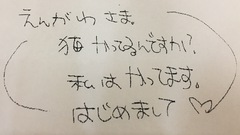 えんがわさま。
猫かってるんですか!?
私はかってます。
はじめまして♡